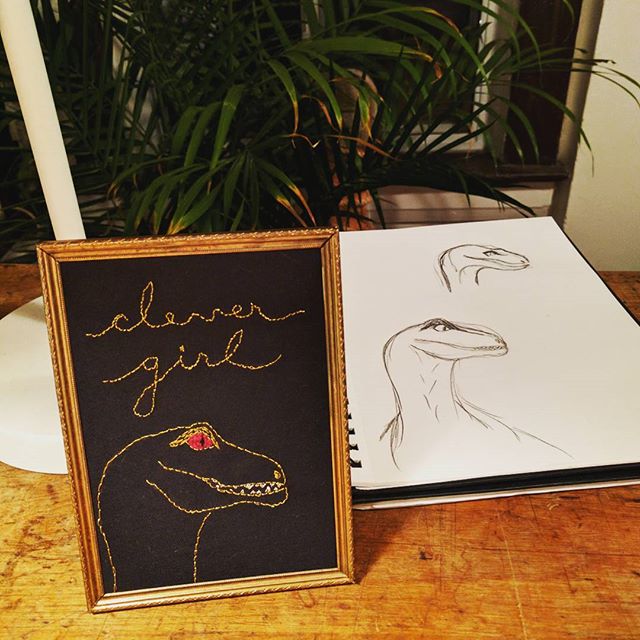 clever
girl